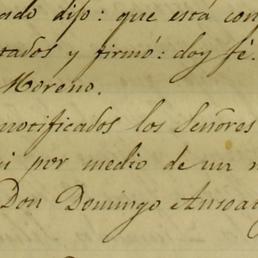 dijo: que está con
tados y firmó: doy fé.
Moreno.
notificados los Señores
por medio de un
Don Domingo